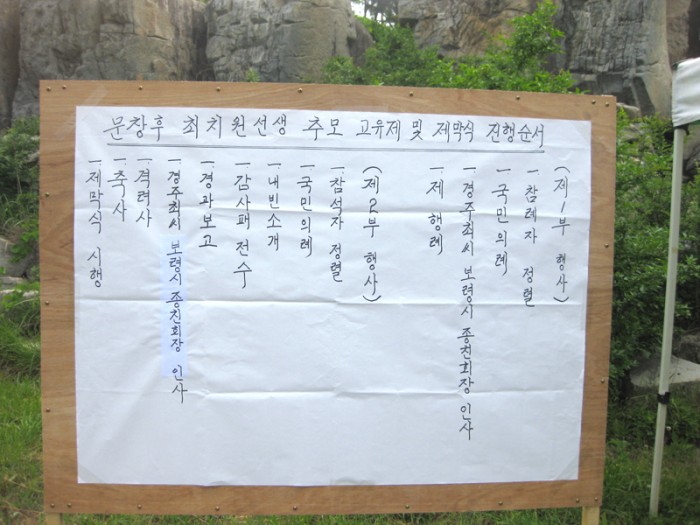 문창후 최치원선생 추모 고유제 및 제막식 진행순서
(제1부 행사)
一 참례자 정렬
一 국민의례
一 경주최씨 보령시 종친회장 인사
一 제 행례
(제2부 행사)
一 참석자 정렬
一 국민의례
一 내빈소개
一 감사패 전수
一 경과보고
一 경주최씨 보령시 종친회장 인사
一 격려사
一 축사
一 제막식 시행